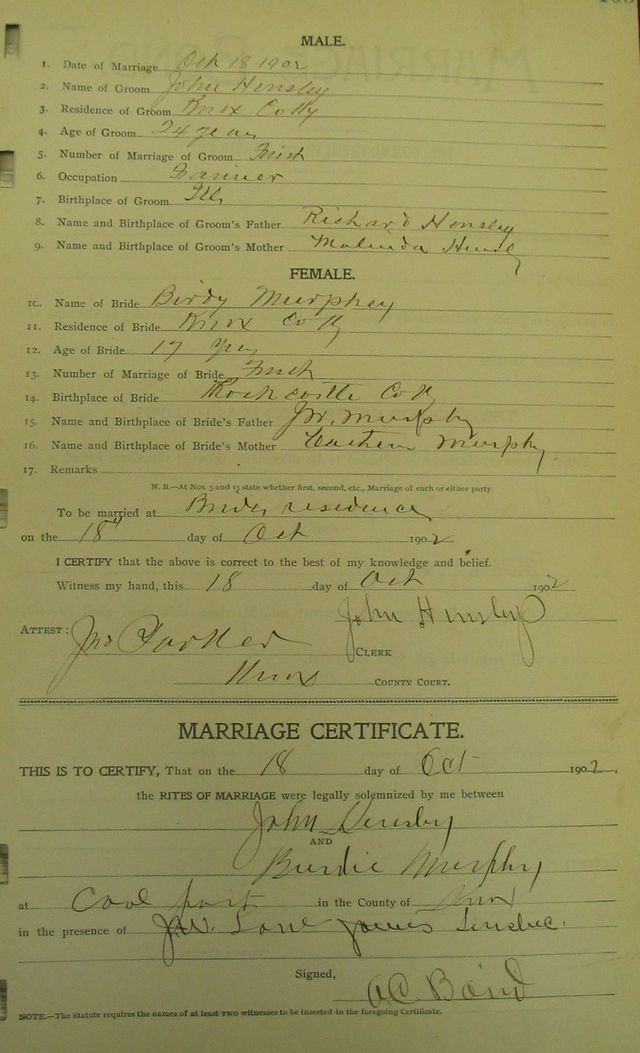 MALE.
1. Date of Marriage Oct 18 1902
2. Name of Groom John Hensley
3. Residence of Groom Knox Co Ky
4. Age of Groom 24 years
5. Number of Marriage of Groom First
6. Occupation Farmer
7. Birthplace of Groom Ills
8. Name and Birthplace of Groom's Father Richard Hensley
9. Name and Birthplace of Groom's Mother Malinda Hensley
FEMALE.
10. Name of Bride Birdy Murphey
11. Residence of Bride Knox Co Ky
12. Age of Bride 17 yrs
13. Number of Marriage of Bride First
14. Birthplace of Bride Co Ky
15. Name and Birthplace of Bride's Father Murphy
16. Name and Birthplace of Bride's Mother Murphy
17. Remarks
N. B.—At Nos. 5 and 13 state whether first, second, etc., Marriage of each or either party.
To be married at Brides residence
on the 18" day of Oct 1902
I CERTIFY that the above is correct to the best of my knowledge and belief.
Witness my hand, this 18 day of Oct 1902
John Hensley
ATTEST: Jno Parker CLERK
Knox COUNTY COURT.
MARRIAGE CERTIFICATE.
THIS IS TO CERTIFY, That on the 18 day of Oct 1902.
the RITES OF MARRIAGE were legally solemnized by me between
John Hensley
AND
Burdie Murphy
at Coal port in the County of Knox
in the presence of James
Signed,
NOTE.—The Statute requires the names of at least two witnesses to be inserted in the foregoing Certificate.